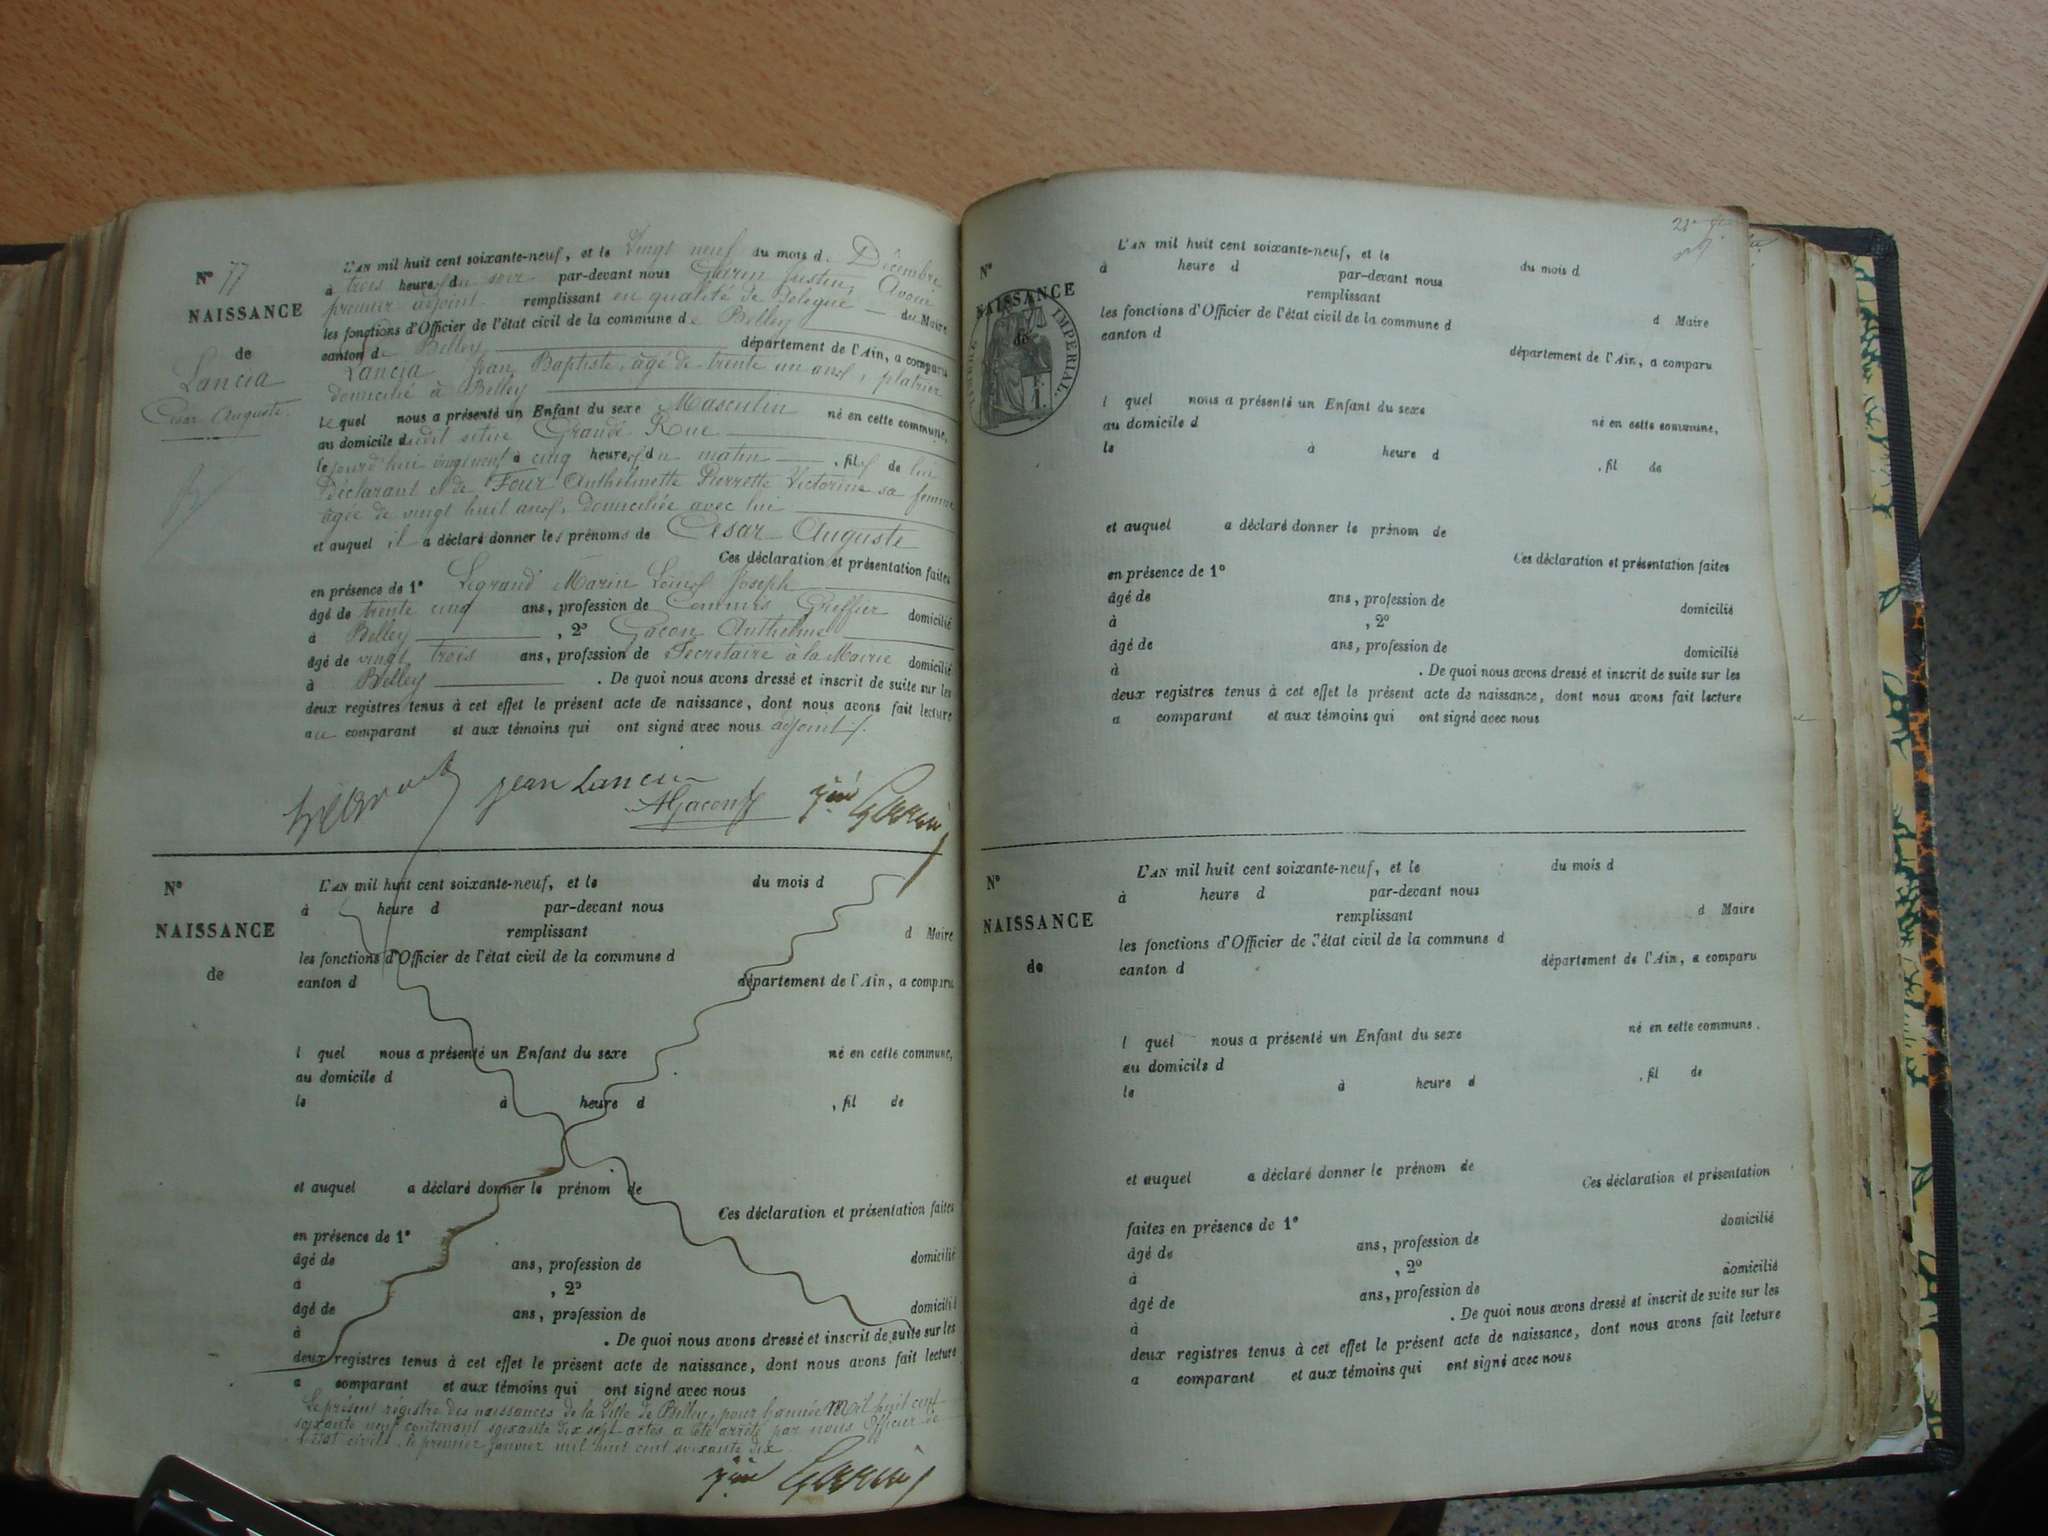 N° 77
NAISSANCE
de
Lancia
César Auguste.
L'AN mil huit cent soixante-neuf, et le Vingt neuf du mois d. Décembre
à trois heures du soir par-devant nous Garin Justin, Avoué
premier adjoint remplissant en qualité de Délégué du Maire
les fonctions d'Officier de l'état civil de la commune de Belley
canton de Belley département de l'Ain, a comparu
Lancia Jean Baptiste, âgé de trente un ans, platrier
domicilié à Belley
lequel nous a présenté un Enfant du sexe Masculin né en cette commune,
au domicile dudit situé Grande Rue
le jourd'hui vingt neuf à cinq heures du matin , fils de lui
Déclarant et de Four Anthelmette Pierrette Victorine sa femme
âgée de vingt huit ans, domiciliée avec lui
et auquel il a déclaré donner les prénoms de César Auguste
Ces déclaration et présentation faites
en présence de 1° Legrand Marin Louis Joseph
âgé de trente cinq ans, profession de Commis Greffier domicilié
à Belley , 2° Gacon Anthelme
âgé de vingt trois ans, profession de Secrétaire à la Mairie domicilié
à Belley . De quoi nous avons dressé et inscrit de suite sur les
deux registres tenus à cet effet le présent acte de naissance, dont nous avons fait lecture
au comparant et aux témoins qui ont signé avec nous adjoint.
Jean Lancia
AGacon
Garin
N°
NAISSANCE
de
L'AN mil huit cent soixante-neuf, et le du mois d
à heure d par-devant nous
remplissant d Maire
les fonctions d'Officier de l'état civil de la commune d
canton d département de l'Ain, a comparu
l quel nous a présenté un Enfant du sexe né en cette commune,
au domicile d
le à heure d , fil de
et auquel a déclaré donner le prénom de
Ces déclaration et présentation faites
en présence de 1°
âgé de ans, profession de domicilié
à , 2°
âgé de ans, profession de domicilié
à . De quoi nous avons dressé et inscrit de suite sur les
deux registres tenus à cet effet le présent acte de naissance, dont nous avons fait lecture
a comparant et aux témoins qui ont signé avec nous
Le présent régistre des naissances de la Ville de Belley, pour l'année Mil huit cent
soixante neuf contenant soixante dix sept actes a été arrêté par nous Officier de
l'état civil, le premier Janvier mil huit cent soixante dix
Garin
N°
NAISSANCE
de
TIMBRE IMPERIAL.
L'AN mil huit cent soixante-neuf, et le du mois d
à heure d par-devant nous
remplissant d Maire
les fonctions d'Officier de l'état civil de la commune d
canton d département de l'Ain, a comparu
l quel nous a présenté un Enfant du sexe né en cette commune,
au domicile d
le à heure d , fil de
et auquel a déclaré donner le prénom de
Ces déclaration et présentation faites
en présence de 1°
âgé de ans, profession de domicilié
à , 2°
âgé de ans, profession de domicilié
à . De quoi nous avons dressé et inscrit de suite sur les
deux registres tenus à cet effet le présent acte de naissance, dont nous avons fait lecture
a comparant et aux témoins qui ont signé avec nous
N°
NAISSANCE
de
L'AN mil huit cent soixante-neuf, et le du mois d
à heure d par-devant nous
remplissant d Maire
les fonctions d'Officier de l'état civil de la commune d
canton d département de l'Ain, a comparu
l quel nous a présenté un Enfant du sexe né en cette commune.
au domicile d
le à heure d , fil de
et auquel a déclaré donner le prénom de
Ces déclaration et présentation
faites en présence de 1°
âgé de ans, profession de domicilié
à , 2°
âgé de ans, profession de domicilié
à . De quoi nous avons dressé et inscrit de suite sur les
deux registres tenus à cet effet le présent acte de naissance, dont nous avons fait lecture
a comparant et aux témoins qui ont signé avec nous